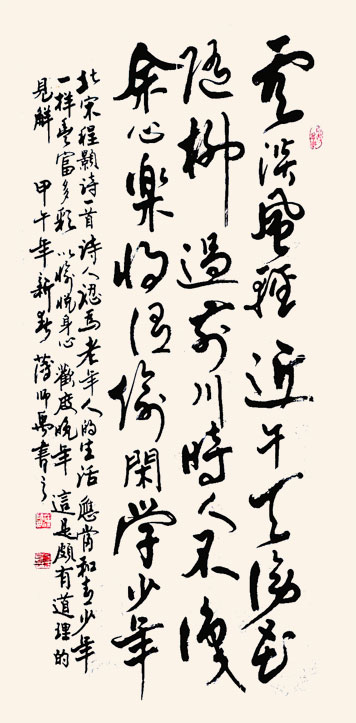 雲淡風輕近午天傍花
隨柳過前川時人不識
余心樂將謂偷閑學少年
北宋程顥詩一首詩人認爲老年人的生活應當和青少年
一樣豐富多彩以愉悅身心歡度晚年這是頗有道理的
見解 甲午年新春 師禹書之